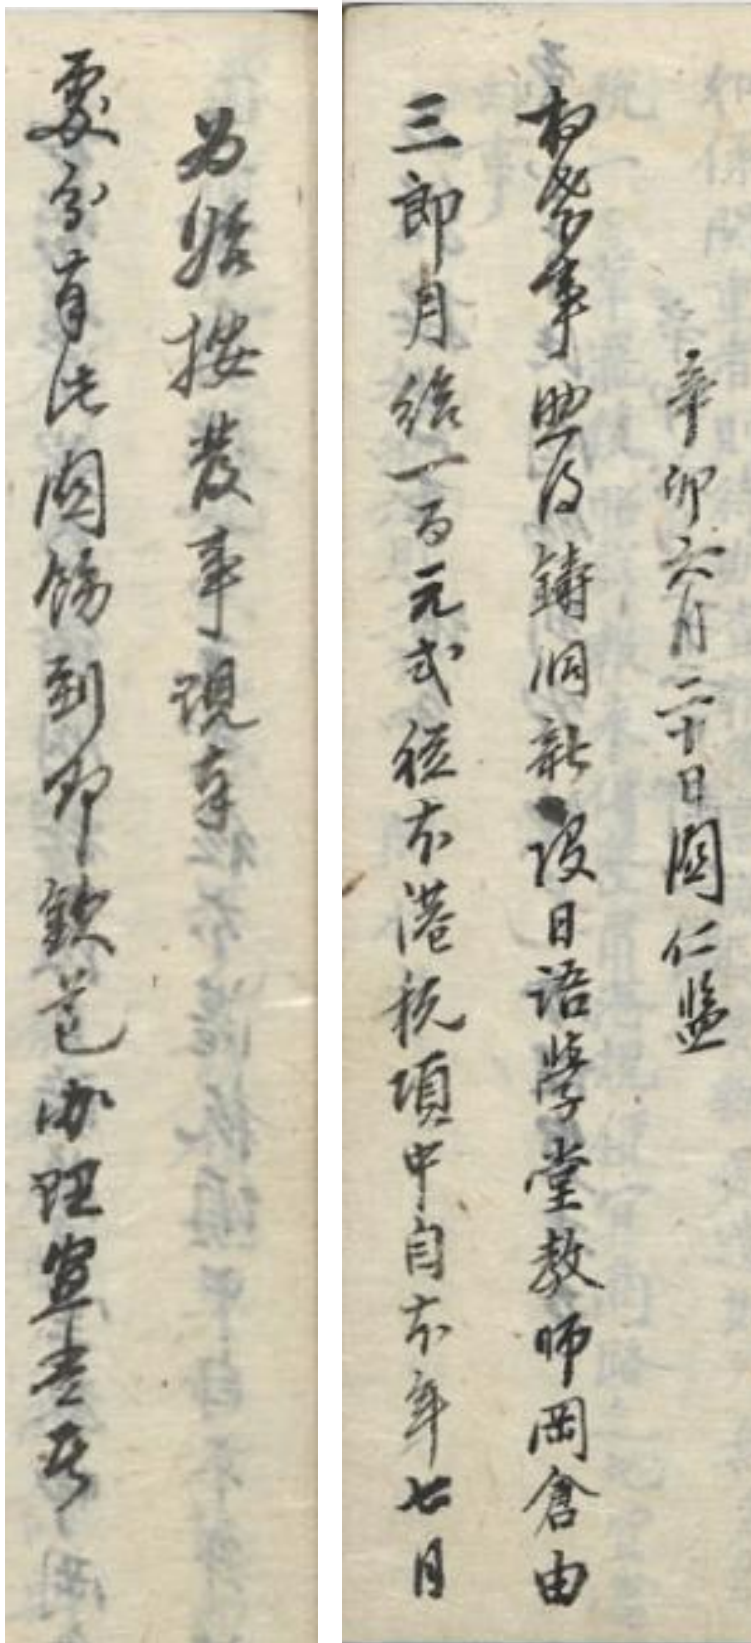 辛卯六月二十日關仁監
相考事照得鑄洞新設日語學堂教師岡倉由
三郎月給一百元式從本港稅項中自本年七月
为始按發事現奉
處分有此關飭到即欽遵办理宜當者